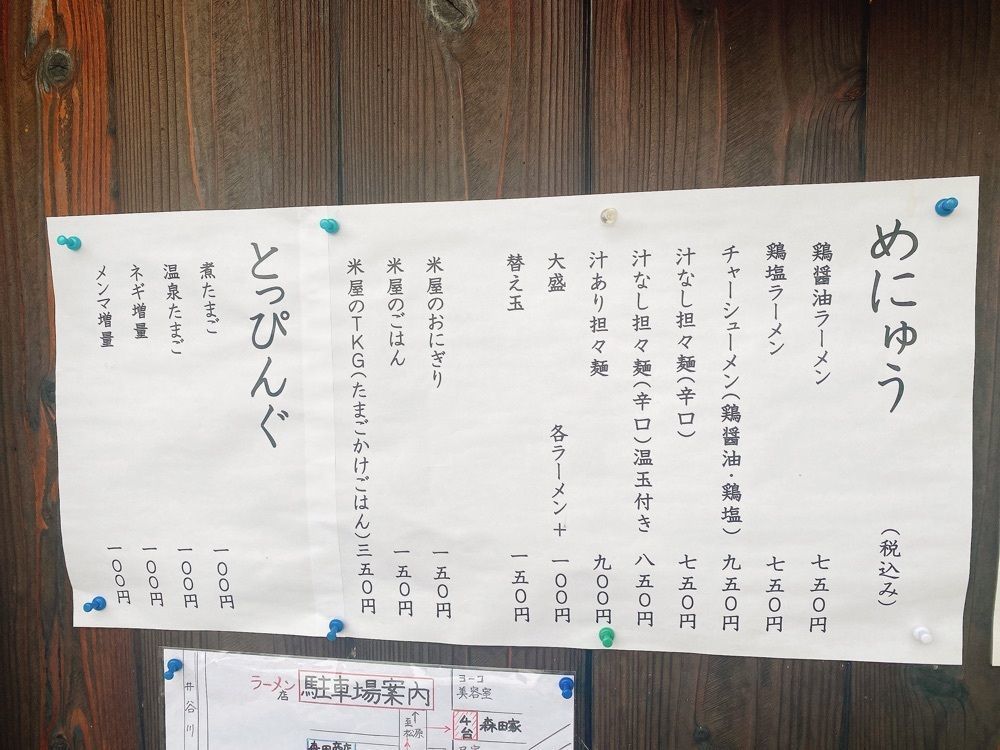 めにゅう
(税込み)
鶏醤油ラーメン 七五〇円
鶏塩ラーメン 七五〇円
チャーシューメン(鶏醤油・鶏塩) 九五〇円
汁なし担々麺(辛口) 七五〇円
汁なし担々麺(辛口)温玉付き 八五〇円
汁あり担々麺 九〇〇円
大盛 各ラーメン+ 一〇〇円
替え玉 一五〇円
米屋のおにぎり 一五〇円
米屋のごはん 一五〇円
米屋のTKG(たまごかけごはん)三五〇円
とっぴんぐ
煮たまご 一〇〇円
温泉たまご 一〇〇円
ネギ増量 一〇〇円
メンマ増量 一〇〇円
ラーメン店
駐車場案内
井谷川
至松原
ヨーコ
美容室
4台
森田家